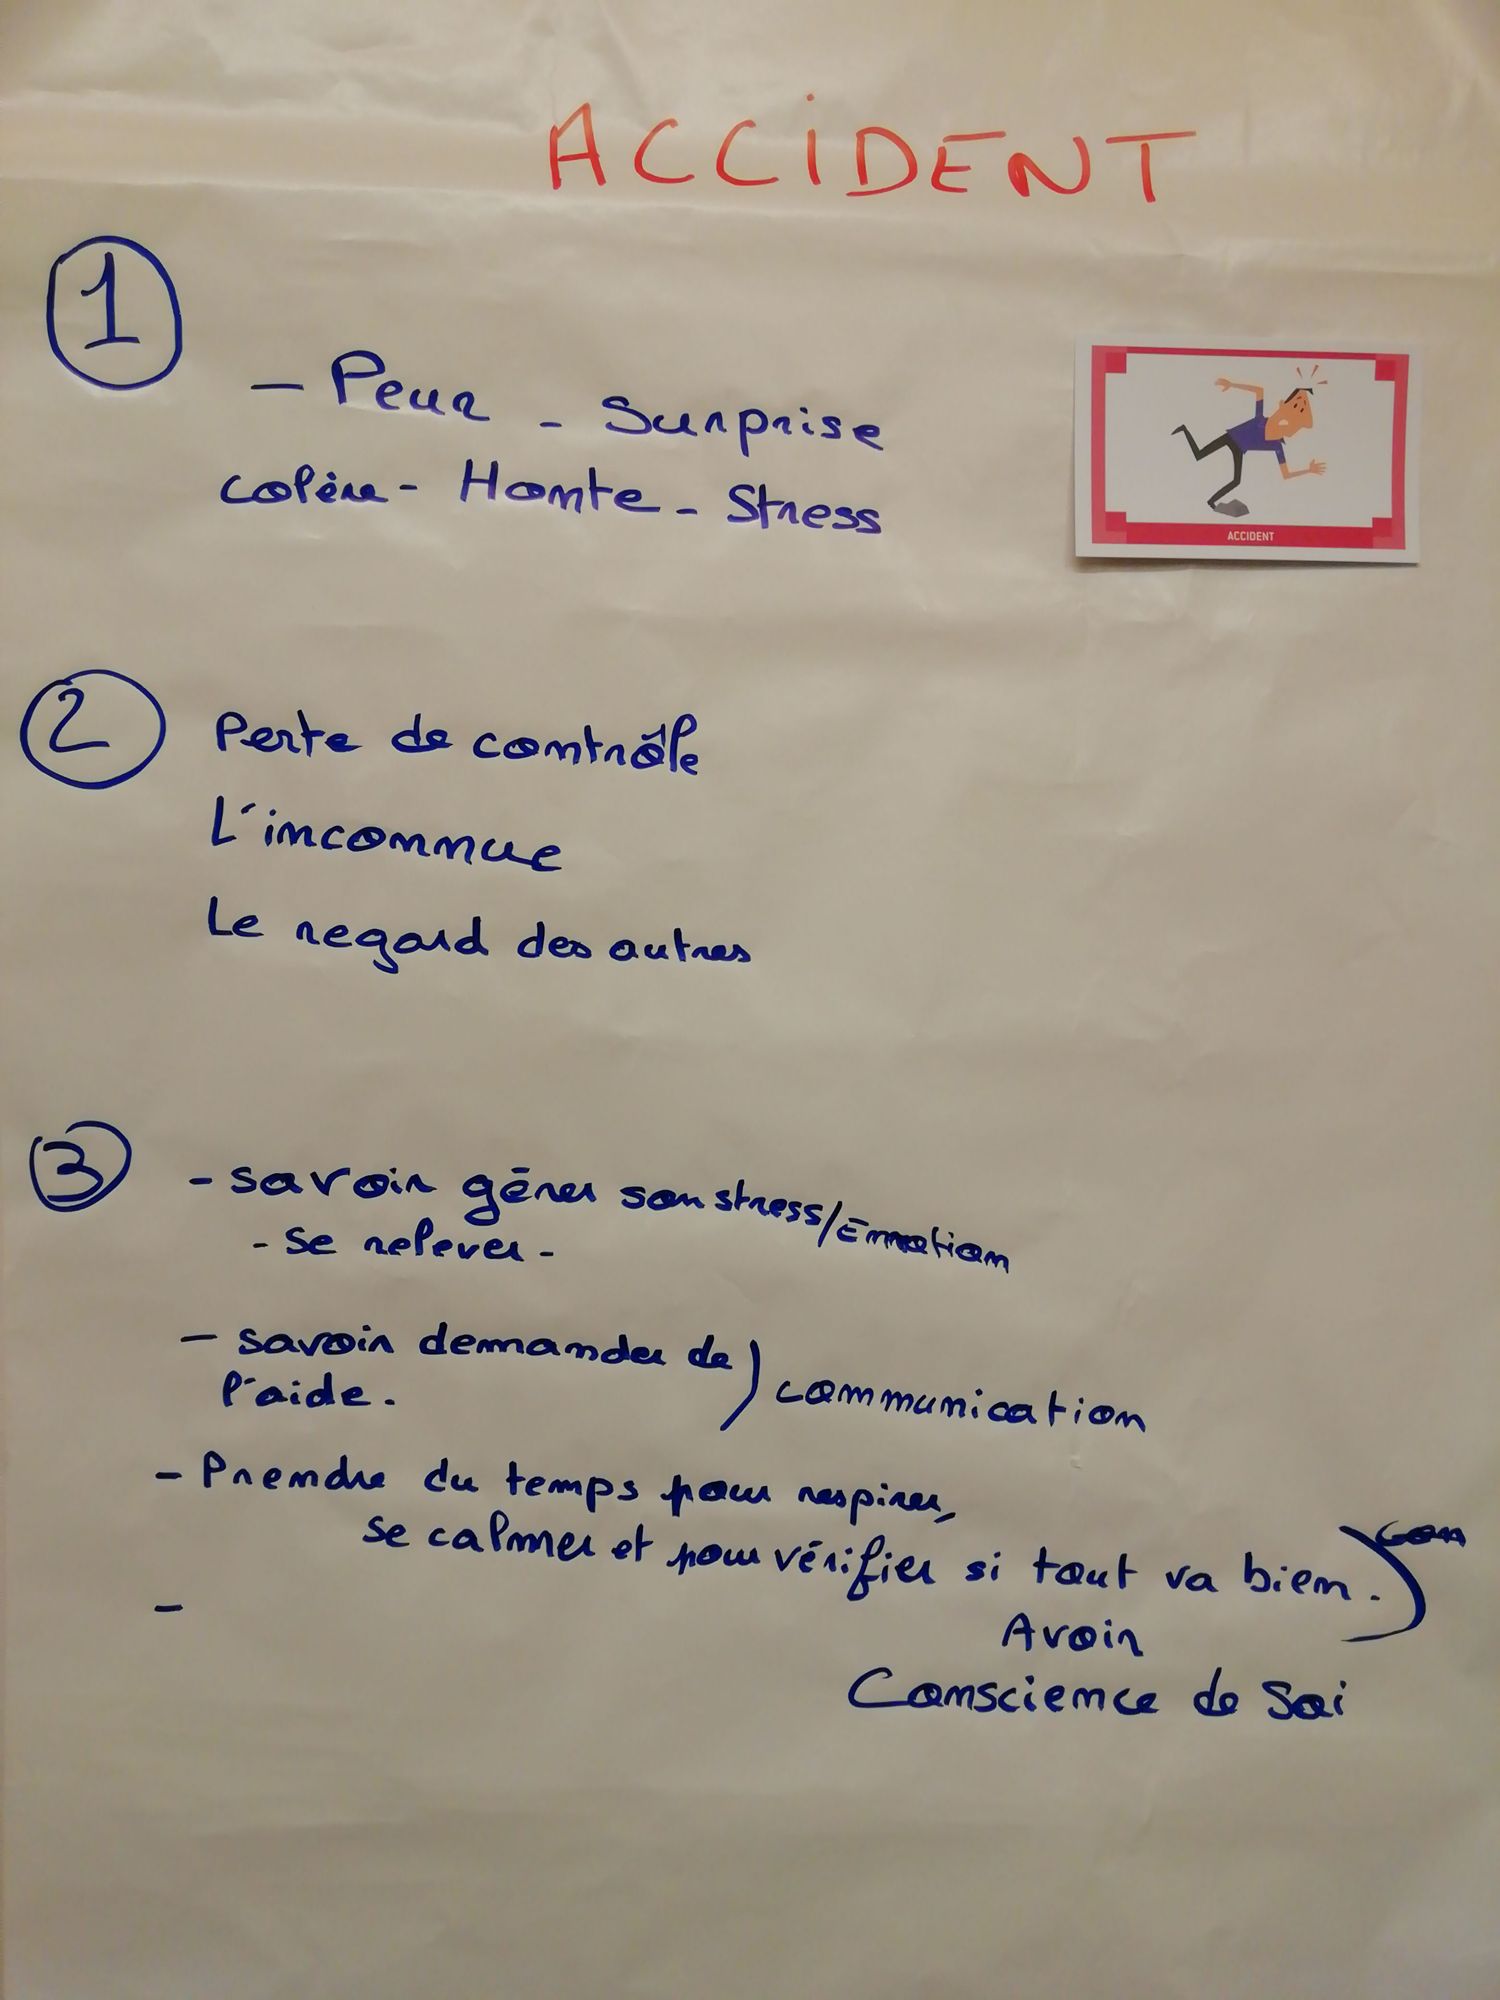 ACCIDENT
1
- Peur - Surprise
colère - Honte - Stress
ACCIDENT
2
Perte de contrôle
L'inconnue
Le regard des autres
3
- savoir gérer son stress/Emotion
- se relever -
- savoir demander de
l'aide.
) communication
- Prendre du temps pour respirer,
se calmer et pour vérifier si tout va bien.
) con
-
Avoir
Conscience de soi